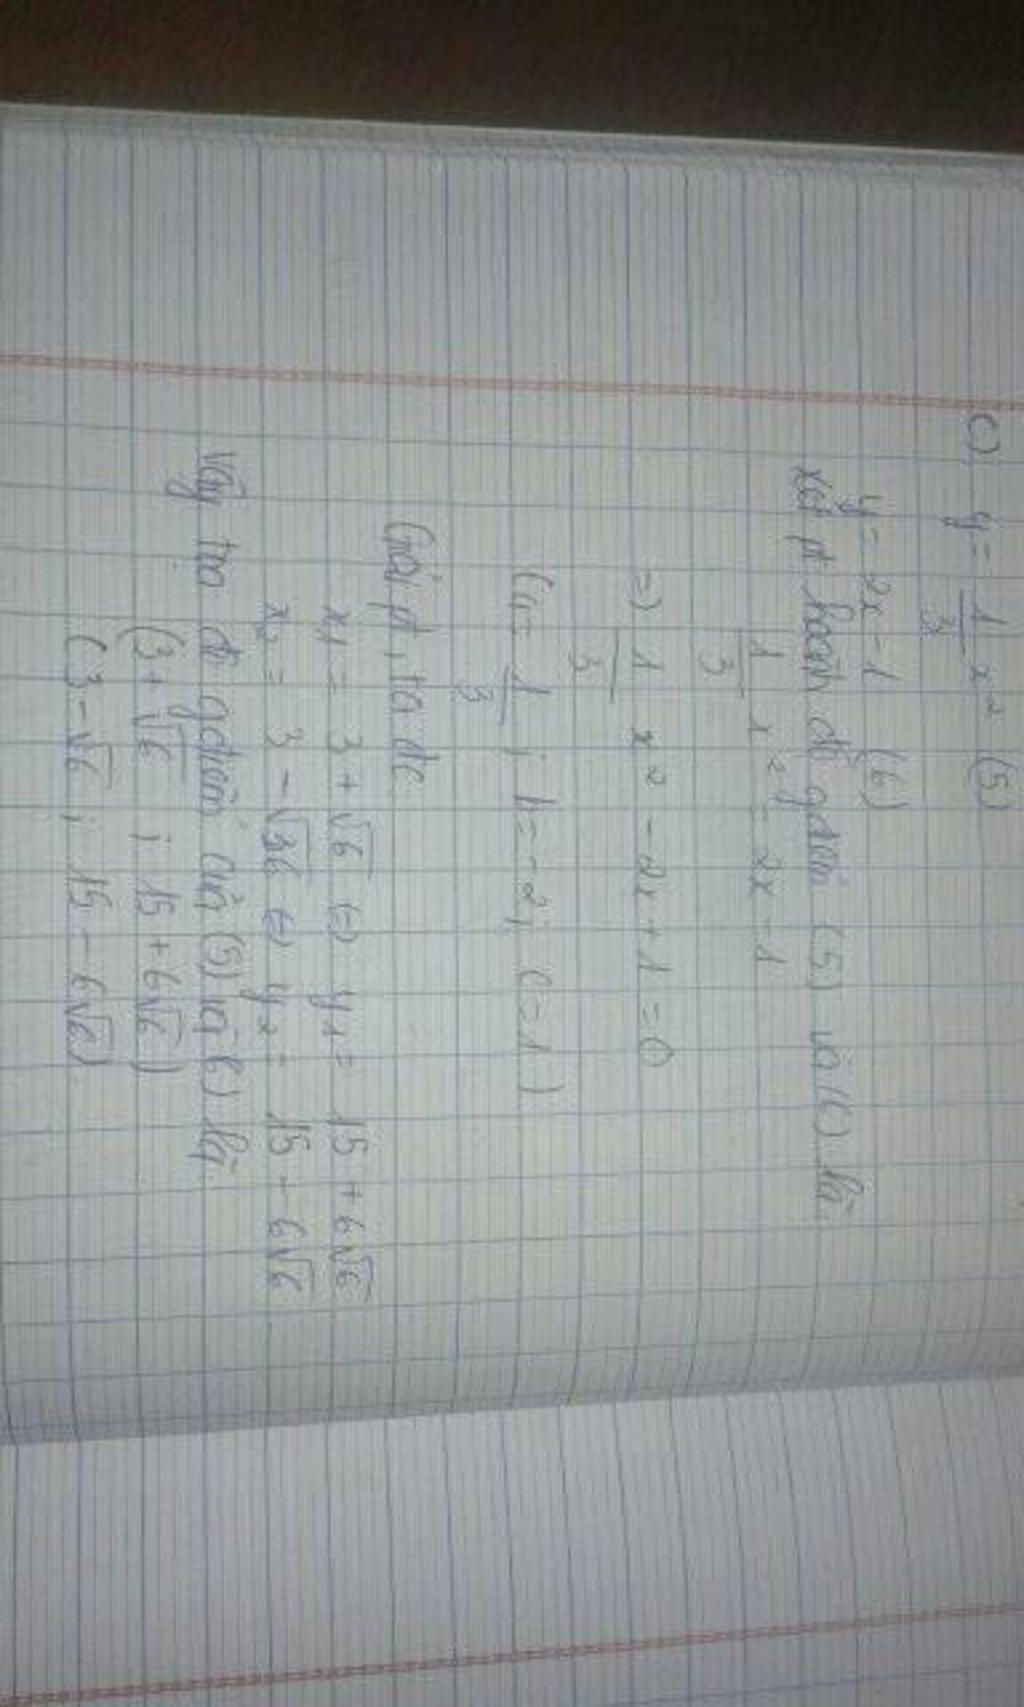 c) y = 1/3 x² (5)
y = 2x - 1 (6)
xét pt hoành độ gđiểm (5) và (6) là
1/3 x² = 2x - 1
=> 1/3 x² - 2x + 1 = 0
(a = 1/3 ; b = -2 ; c = 1)
Giải pt, ta đc
x₁ = 3 + √6 (=) y₁ = 15 + 6√6
x₂ = 3 - √36 (=) y₂ = 15 - 6√6
Vậy tọa độ gđiểm của (5) và (6) là:
(3 + √6 ; 15 + 6√6)
(3 - √6 ; 15 - 6√6)